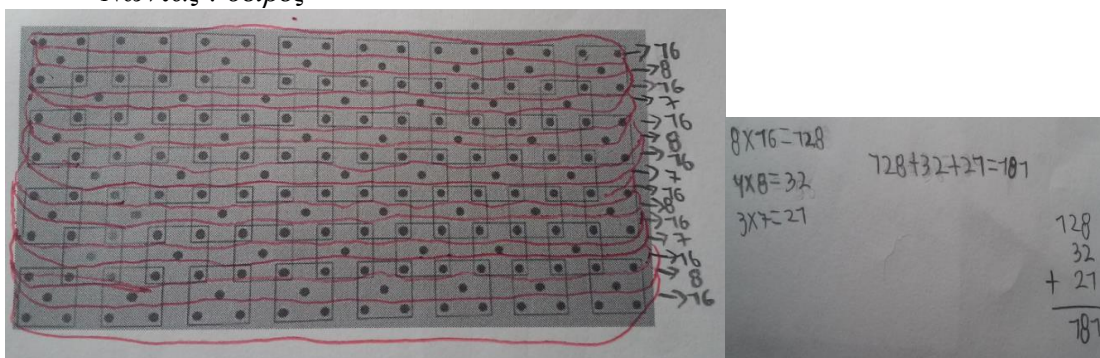 →16
→8
→16
→7
→16
→8
→16
→7
→16
→8
→16
→7
→16
→8
→16
8×16=128
4×8=32
3×7=21
128+32+21=181
128
32
+ 21
181